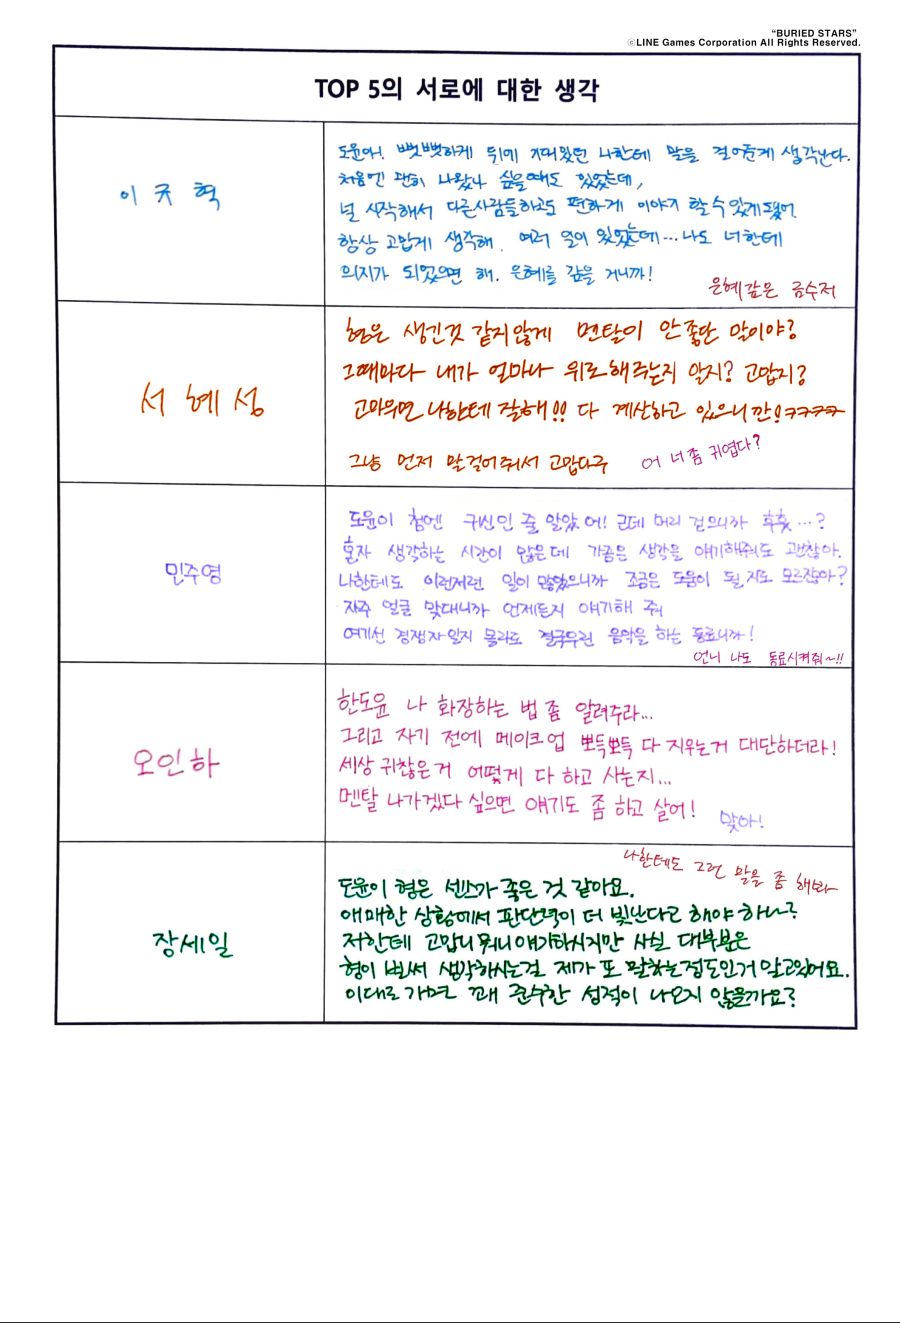 "BURIED STARS"
ⓒLINE Games Corporation All Rights Reserved.
TOP 5의 서로에 대한 생각
이규혁
도윤아! 뻣뻣하게 뒤에 기대있던 나한테 말을 걸어준게 생각난다.
처음엔 괜히 나왔나 싶을때도 있었는데,
널 시작해서 다른사람들하고도 편하게 이야기 할 수 있게 됐어.
항상 고맙게 생각해. 여러 일이 있었는데...나도 너한테
의지가 되었으면 해. 은혜를 갚을 거니까!
은혜갚은 금수저
서혜성
형은 생긴것 같지않게 멘탈이 안좋단 말이야?
그때마다 내가 얼마나 위로해주는지 알지? 고맙지?
고마우면 나한테 잘해!! 다 계산하고 있으니깐!ㅋㅋㅋㅋ
그냥 먼저 말걸어줘서 고맙다구
어 너 좀 귀엽다?
민주영
도윤이 첨엔 귀신인 줄 알았어! 근데 머리 걷으니까 후훗...?
혼자 생각하는 시간이 많은데 가끔은 생각을 얘기해줘도 괜찮아.
나한테도 이런저런 일이 많았으니까 조금은 도움이 될 지도 모르잖아?
자주 얼굴 맞대니까 언제든지 얘기해 줘
여기선 경쟁자일지 몰라도 결국우린 음악을 하는 동료니까!
언니 나도 동료시켜줘~!!
오인하
한도윤 나 화장하는 법 좀 알려주라...
그리고 자기 전에 메이크업 뽀득뽀득 다 지우는거 대단하더라!
세상 귀찮은거 어떻게 다 하고 사는지...
멘탈 나가겠다 싶으면 얘기도 좀 하고 살어!
맞아!
장세일
나한테도 그런 말을 좀 해봐
도윤이 형은 센스가 좋은 것 같아요.
애매한 상황에서 판단력이 더 빛난다고 해야 하나?
저한테 고맙니 뭐니 얘기하시지만 사실 대부분은
형이 벌써 생각하시는걸 제가 또 말하는정도인거 알고있어요.
이대로 가면 꽤 준수한 성적이 나오지 않을까요?